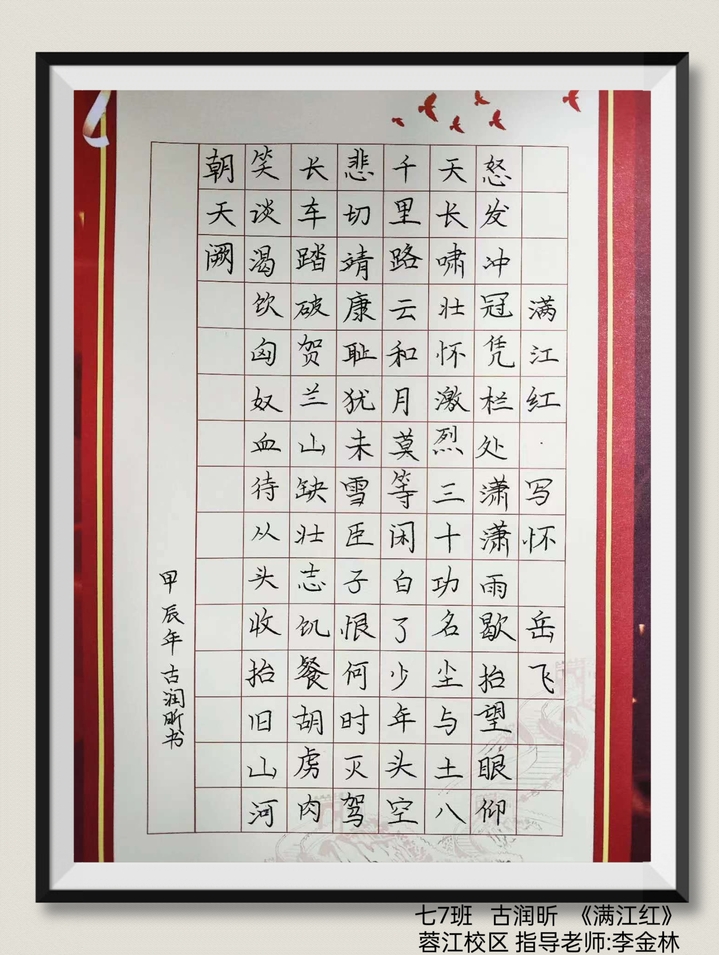 满江红·写怀 岳飞
怒发冲冠凭栏处潇潇雨歇抬望眼仰
天长啸壮怀激烈三十功名尘与土八
千里路云和月莫等闲白了少年头空
悲切靖康耻犹未雪臣子恨何时灭驾
长车踏破贺兰山缺壮志饥餐胡虏肉
笑谈渴饮匈奴血待从头收抬旧山河
朝天阙
甲辰年 古润昕书
七7班 古润昕 《满江红》
蓉江校区 指导老师:李金林